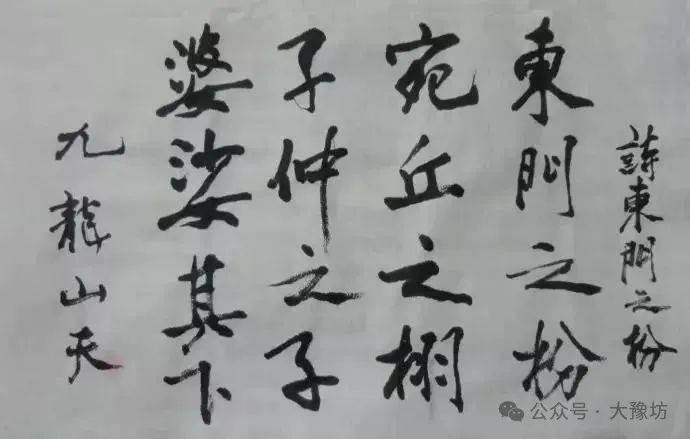 詩東門之枌
東門之枌
宛丘之栩
子仲之子
婆娑其下
九龍山天
公众号·大豫坊